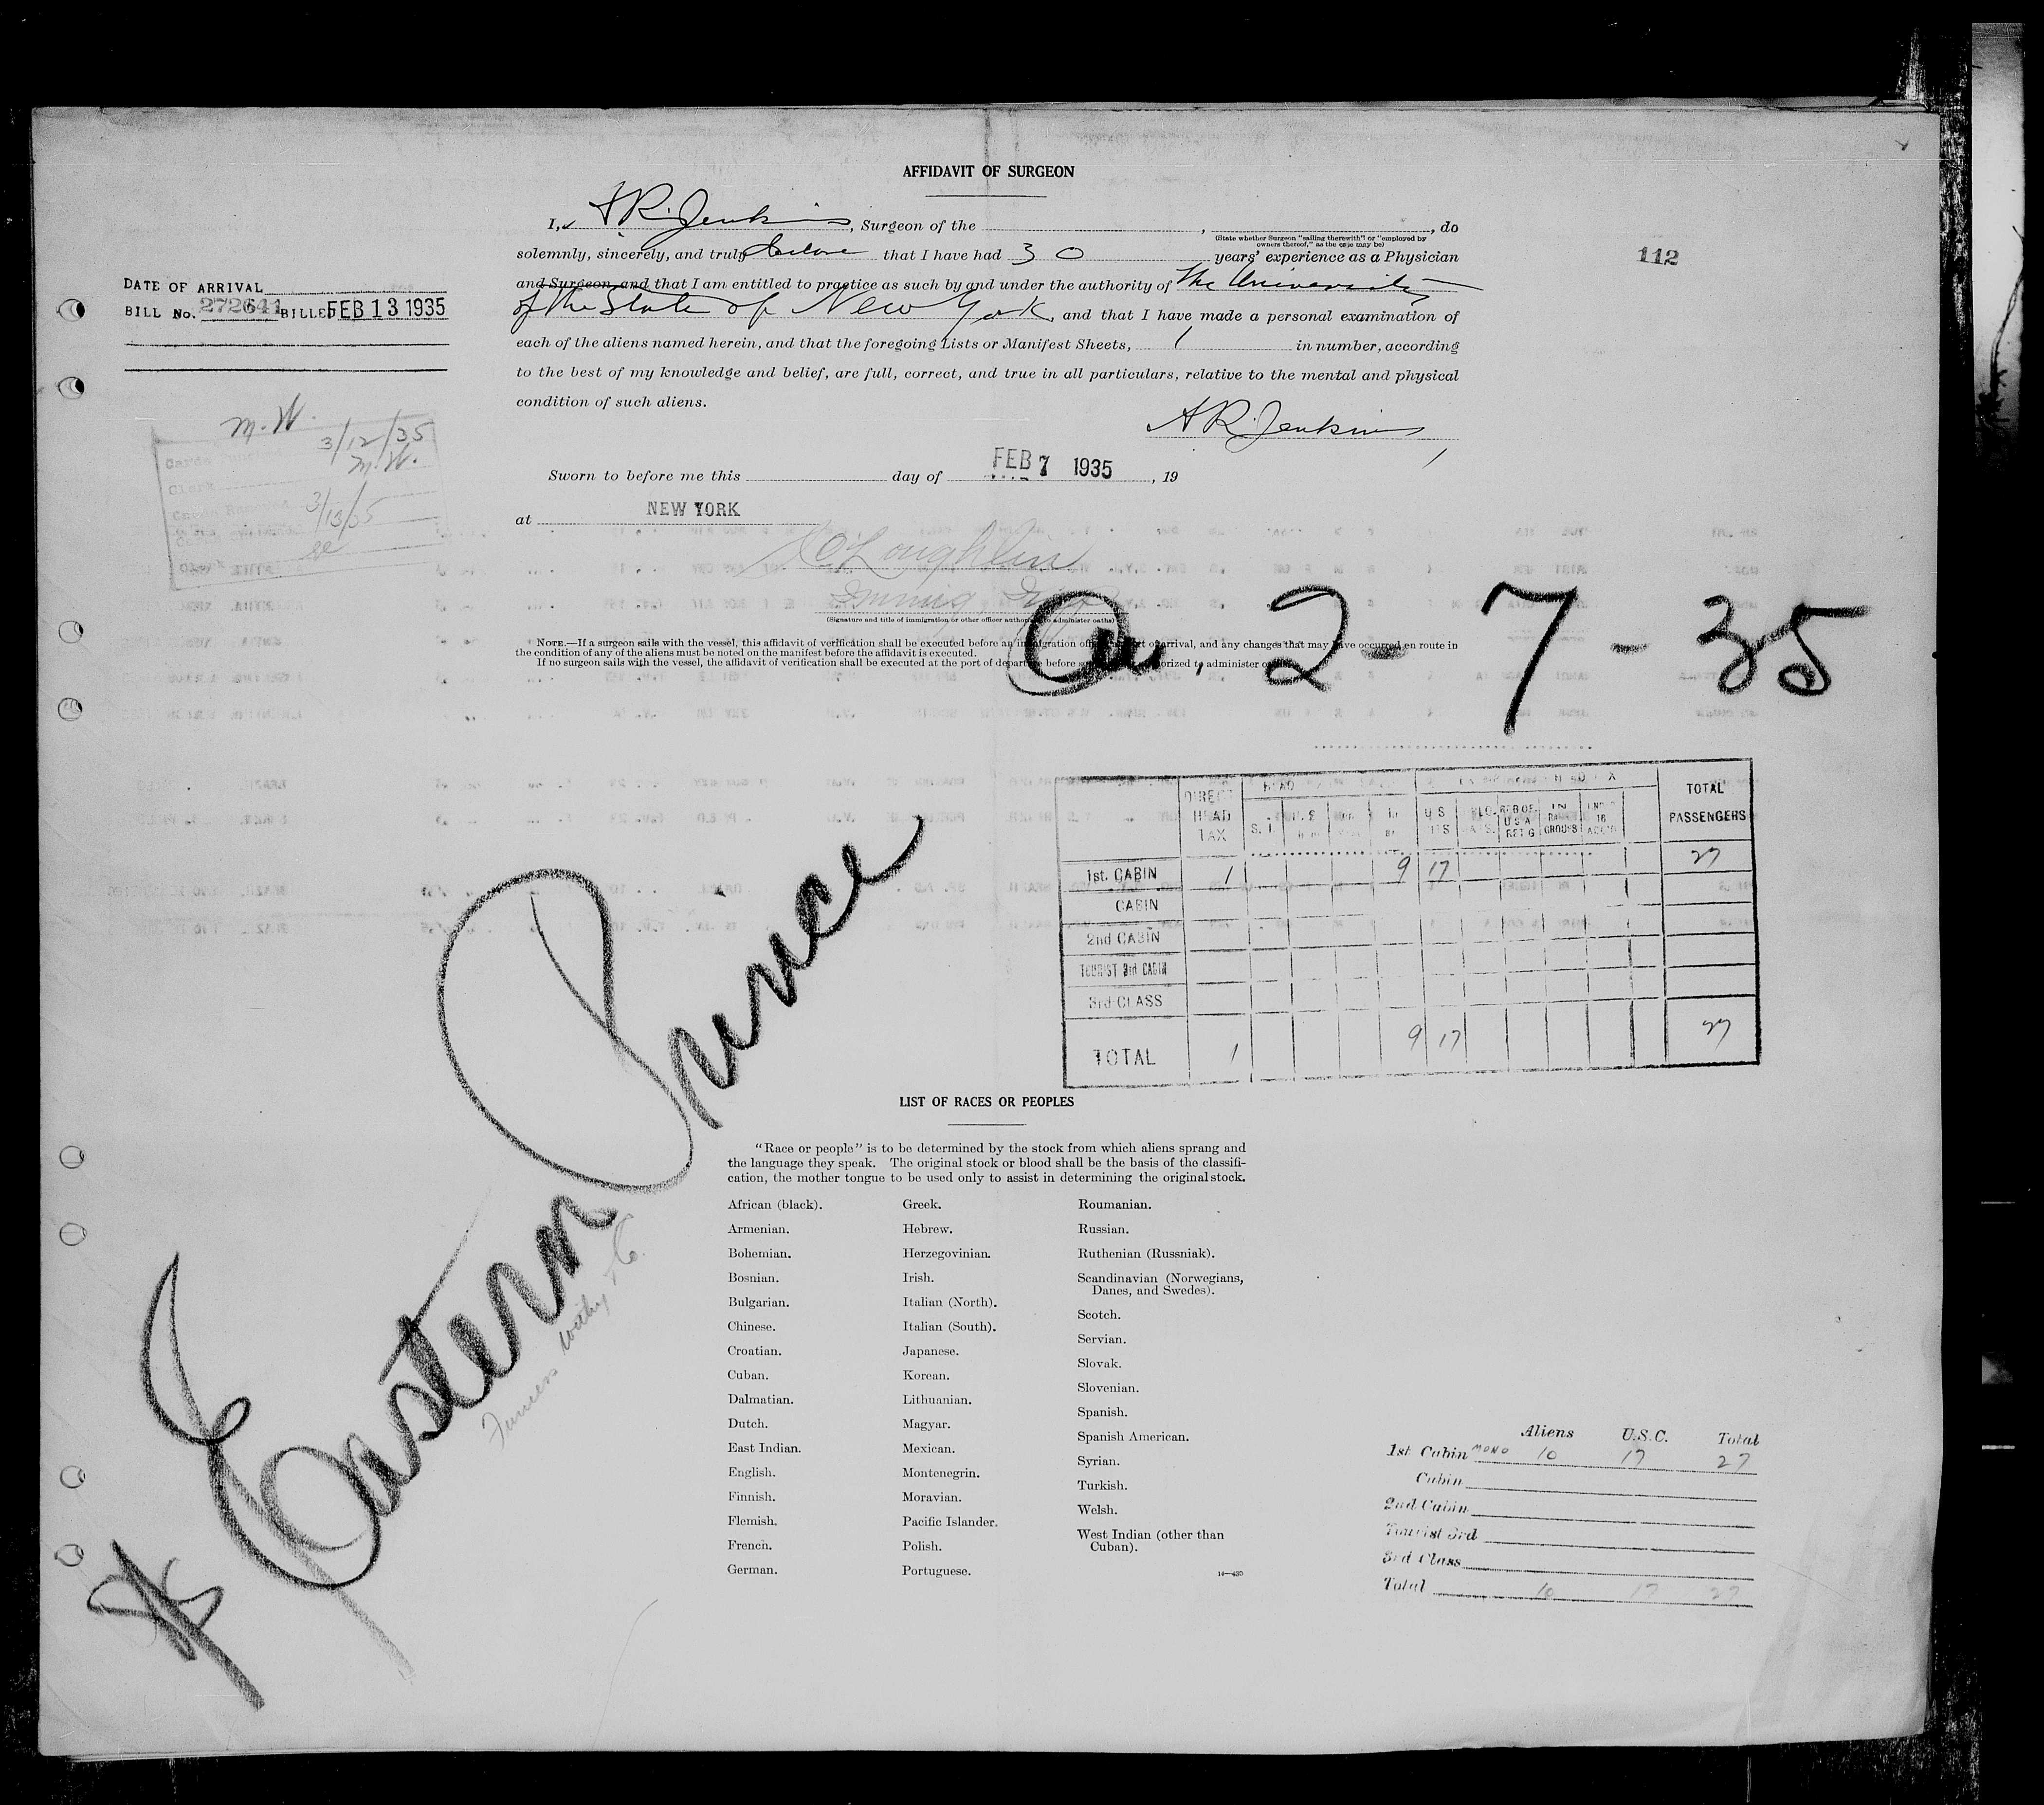 AFFIDAVIT OF SURGEON
I, A R. Jenkins, Surgeon of the , , do
(State whether Surgeon "sailing therewith" or "employed by
owners thereof," as the case may be)
solemnly, sincerely, and truly declare that I have had 30 years' experience as a Physician
and Surgeon, and that I am entitled to practice as such by and under the authority of The University
of the State of New York, and that I have made a personal examination of
each of the aliens named herein, and that the foregoing Lists or Manifest Sheets, 1 in number, according
to the best of my knowledge and belief, are full, correct, and true in all particulars, relative to the mental and physical
condition of such aliens.
A R. Jenkins
112
DATE OF ARRIVAL
BILL No. 272641 BILLED FEB 13 1935
M.W.
3/12/35
M.W.
Clerk
3/13/35
Clerk
Sworn to before me this day of FEB 7 1935, 19
at NEW YORK
O'Loughlin
(Signature and title of immigration or other officer authorized to administer oaths)
NOTE.—If a surgeon sails with the vessel, this affidavit of verification shall be executed before an immigration officer at port of arrival, and any changes that may have occurred en route in
the condition of any of the aliens must be noted on the manifest before the affidavit is executed.
If no surgeon sails with the vessel, the affidavit of verification shall be executed at the port of departure before authorized to administer
2-7-35
DIRECT HEAD TAX
TOTAL PASSENGERS
1st. CABIN 1 9 17 27
CABIN
2nd CABIN
TOURIST 3rd CABIN
3rd CLASS
TOTAL 1 9 17 27
Eastern Prince
Furness Withy & Co.
LIST OF RACES OR PEOPLES
"Race or people" is to be determined by the stock from which aliens sprang and
the language they speak. The original stock or blood shall be the basis of the classifi-
cation, the mother tongue to be used only to assist in determining the original stock.
African (black).
Armenian.
Bohemian.
Bosnian.
Bulgarian.
Chinese.
Croatian.
Cuban.
Dalmatian.
Dutch.
East Indian.
English.
Finnish.
Flemish.
French.
German.
Greek.
Hebrew.
Herzegovinian.
Irish.
Italian (North).
Italian (South).
Japanese.
Korean.
Lithuanian.
Magyar.
Mexican.
Montenegrin.
Moravian.
Pacific Islander.
Polish.
Portuguese.
Roumanian.
Russian.
Ruthenian (Russniak).
Scandinavian (Norwegians,
Danes, and Swedes).
Scotch.
Servian.
Slovak.
Slovenian.
Spanish.
Spanish American.
Syrian.
Turkish.
Welsh.
West Indian (other than
Cuban).
14—430
Aliens U.S.C. Total
1st Cabin MONO 10 17 27
Cabin
2nd Cabin
Tourist 3rd
3rd Class
Total 10 17 27